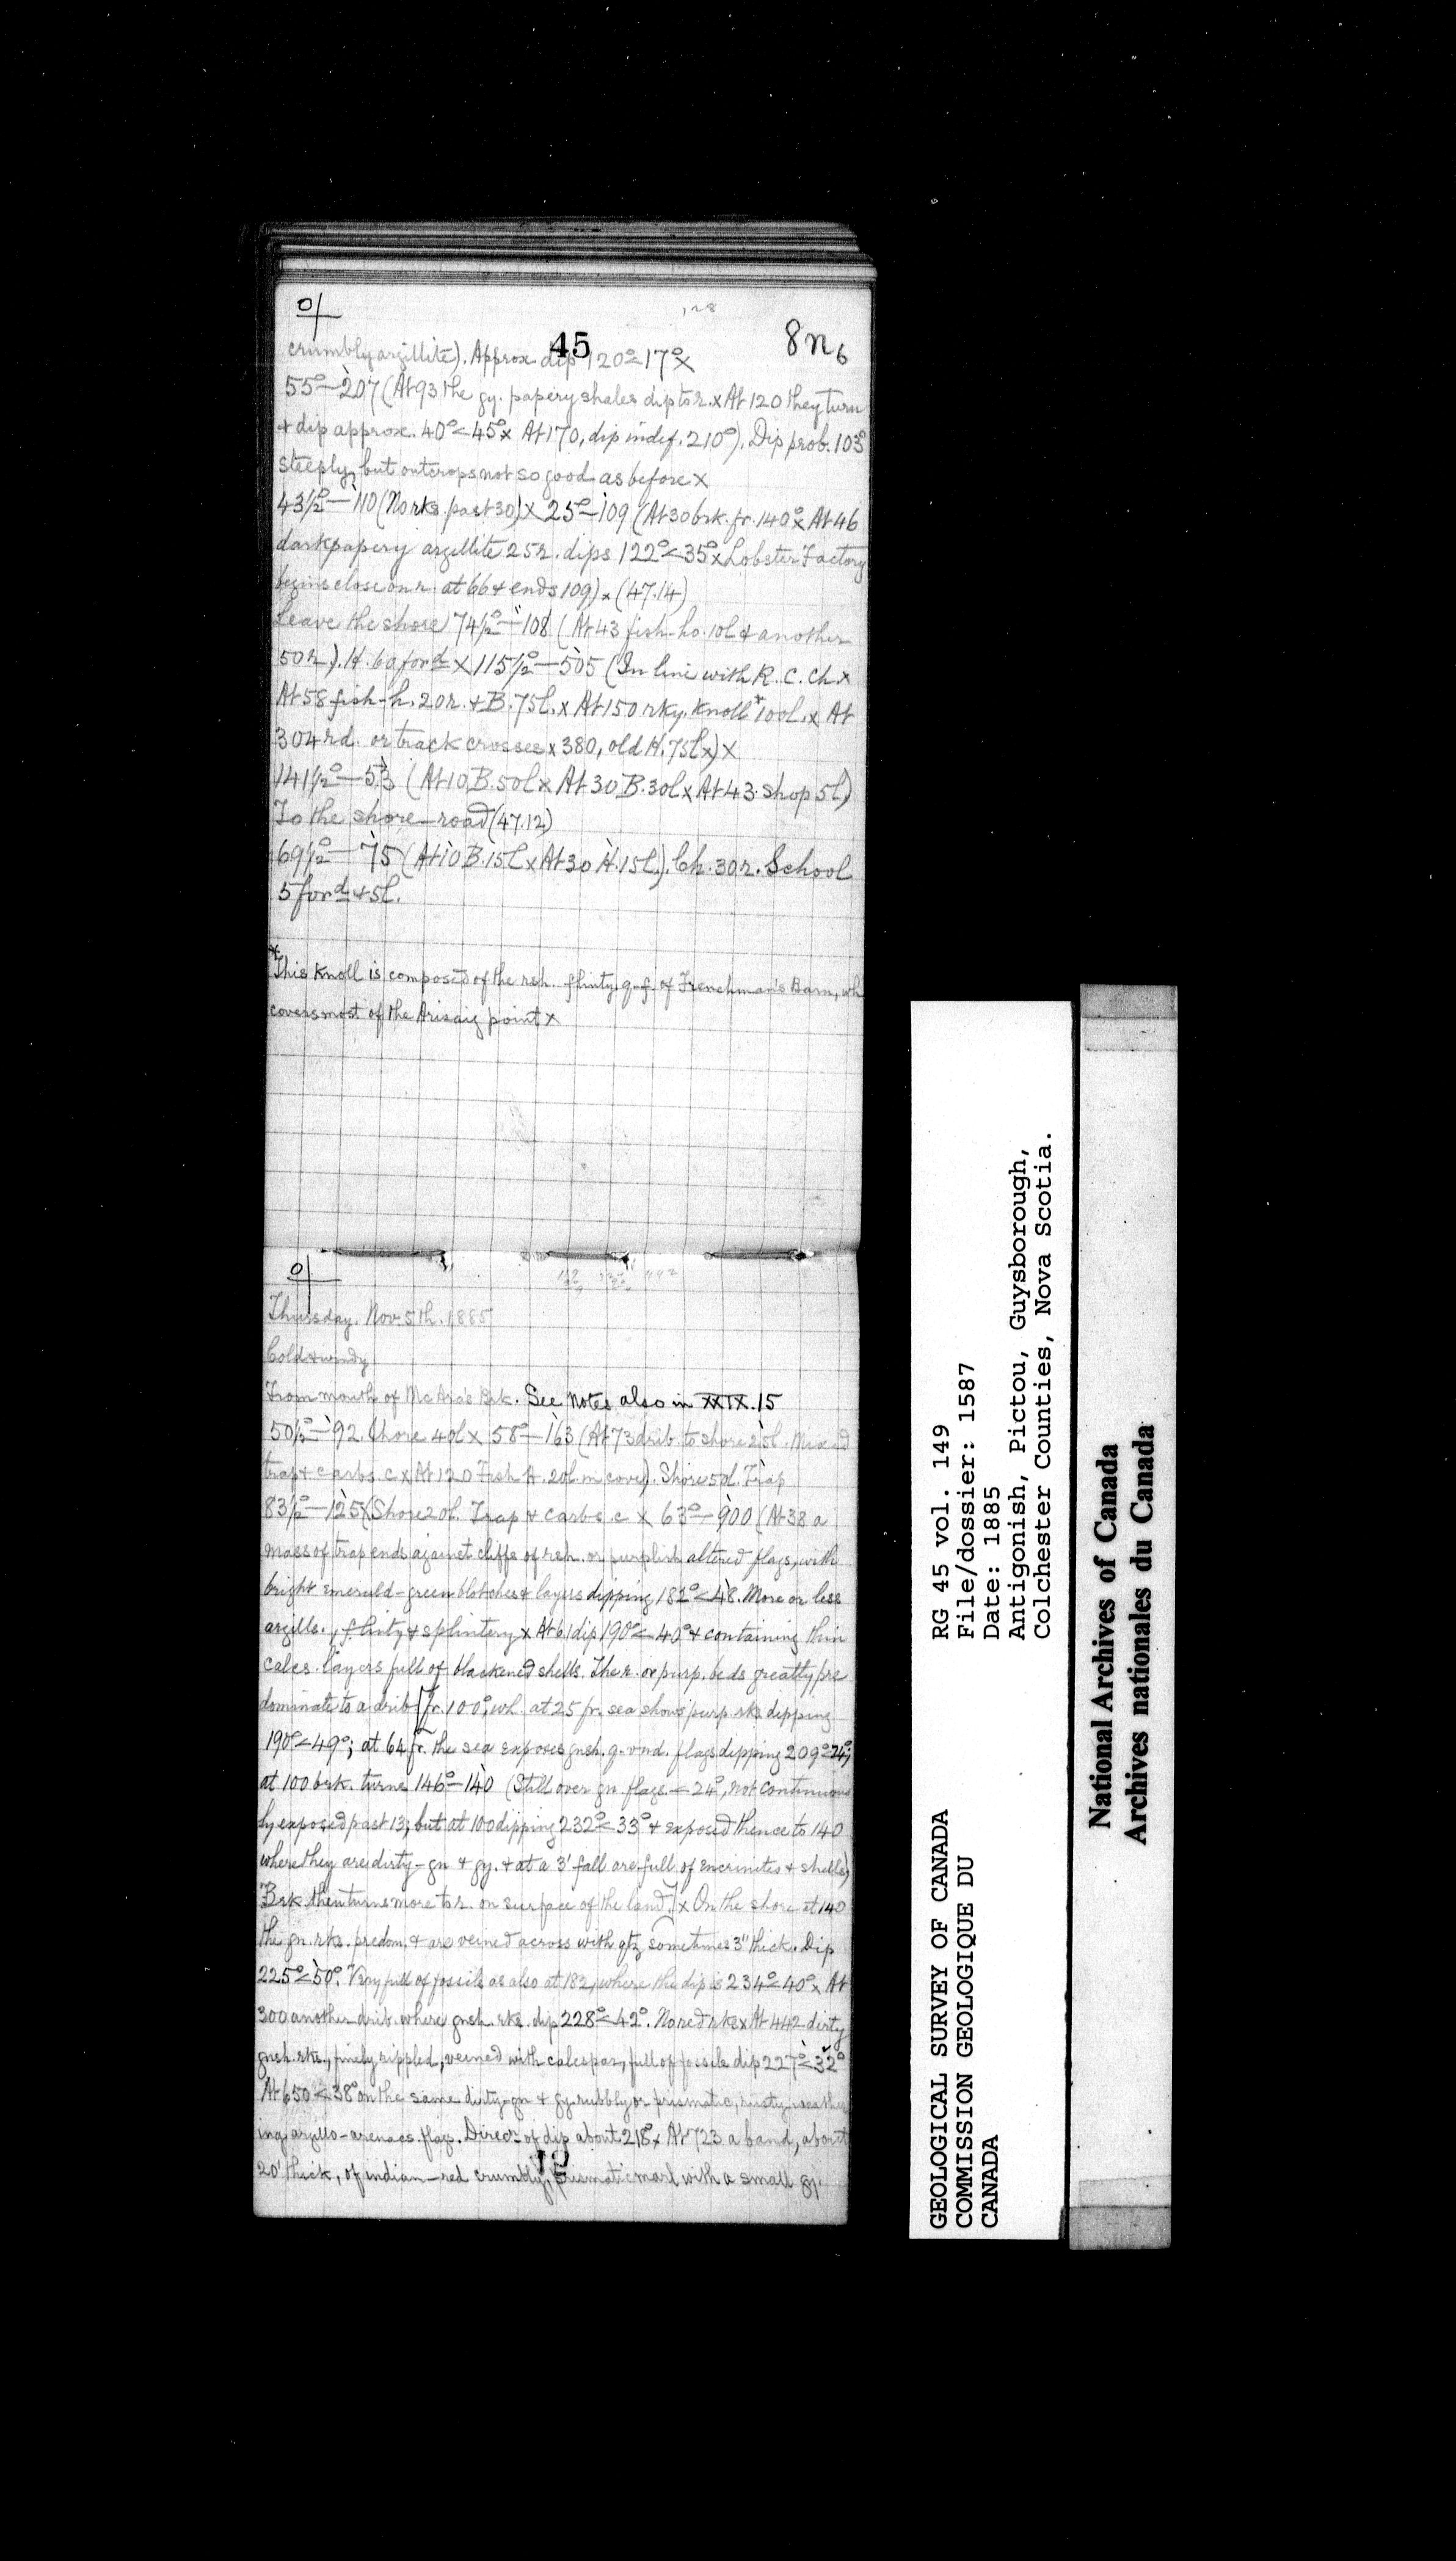 45
8n6
crumbly argillite). Approx. dip 120°<17° x
55°—207 (At 93 the gy. papery shales dip to r. x At 120 they turn
& dip approx. 40°<45° x At 170, dip indef. 210°). Dip prob. 103°
steeply, but outcrops not so good as before x
43½°—110 (No rks. past 30) x 25°—109 (At 30 brk. fr. 140° x At 46
dark papery argillite 25 r. dips 122°<35° x Lobster Factory
begins close on r. at 66 & ends 109) x (47.14)
Leave the shore 74½°—108 (At 43 fish-ho. 10l & another
50 r.). H. 60 ford x 115½°—505 (In line with R. C. Ch. x
At 58 fish-h. 20 r. & B. 75l. x At 150 rky. knoll* 100l. x At
304 rd. or track crosses x 380, old H. 75l x) x
141½°—53 (At 10 B. 50l x At 30 B. 30l x At 43 shop 5l)
To the shore-road (47.12)
69½°—75 (At 10 B. 15l x At 30 H. 15l.). Ch. 30 r. School
5 ford & 5l.
*This knoll is composed of the rsh. flinty q-f. of Frenchman's Barn, wh
covers most of the Arisaig point x
Thursday. Nov. 5th. 1885
Cold & windy
From mouth of McAra's Brk. See Notes also in XXIX.15
50½°—92. Shore 40l x 58°—163 (At 73 drib. to shore 25l. Mixed
trap & carbs. c x At 120 Fish H. 20l. in cove). Shore 50l. Trap
83½°—125 (Shore 20l. Trap & carbs. c x 63°—900 (At 38 a
mass of trap ends against cliffs of rsh. or purplish altered flags, with
bright emerald-green blotches & layers dipping 182°<48. More or less
argills., flinty & splintery x At 61 dip 190°<40° & containing thin
calcs. layers full of blackened shells. The r. or purp. beds greatly pre
dominate to a drib. [fr. 100°, wh. at 25 fr. sea shows purp. rks. dipping
190°<49°; at 64 fr. the sea exposes gnsh. q-vnd. flags dipping 209°<24°;
at 100 brk. turns 146°—140 (Still over gn flags <24°, not continuous
ly exposed past 13; but at 100 dipping 232°<33° & exposed thence to 140
where they are dirty-gn & gy. & at a 3' fall are full of encrinites & shells)
Brk. then turns more to r. on surface of the land] x On the shore at 140
the gn. rks. predom. & are veined across with qtz sometimes 3" thick. Dip
225°<50°. Very full of fossils as also at 182, where the dip is 234°<40° x At
300 another drib. where gnsh. rks. dip 228°<42°. No red rks x At 442 dirty
gnsh. rks., finely rippled, veined with calcspar, full of fossils dip 227°<32°
At 650 <38° on the same dirty-gn & gy. rubbly or prismatic, rusty-weather
ing argillo-arenacs. flags. Direcn of dip about 218° x At 723 a band, about
20' thick, of indian-red crumbly, prismatic marl with a small gy.
GEOLOGICAL SURVEY OF CANADA
COMMISSION GEOLOGIQUE DU
CANADA
RG 45 vol. 149
File/dossier: 1587
Date: 1885
Antigonish, Pictou, Guysborough,
Colchester Counties, Nova Scotia.
National Archives of Canada
Archives nationales du Canada